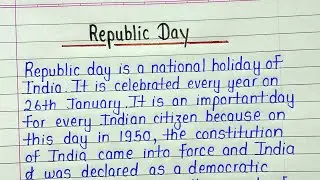 Republic Day
Republic day is a national holiday of
India. It is celebrated every year on
26th January. It is an important day
for every Indian citizen because on
this day in 1950, the constitution
of India came into force and India
was declared as a democratic